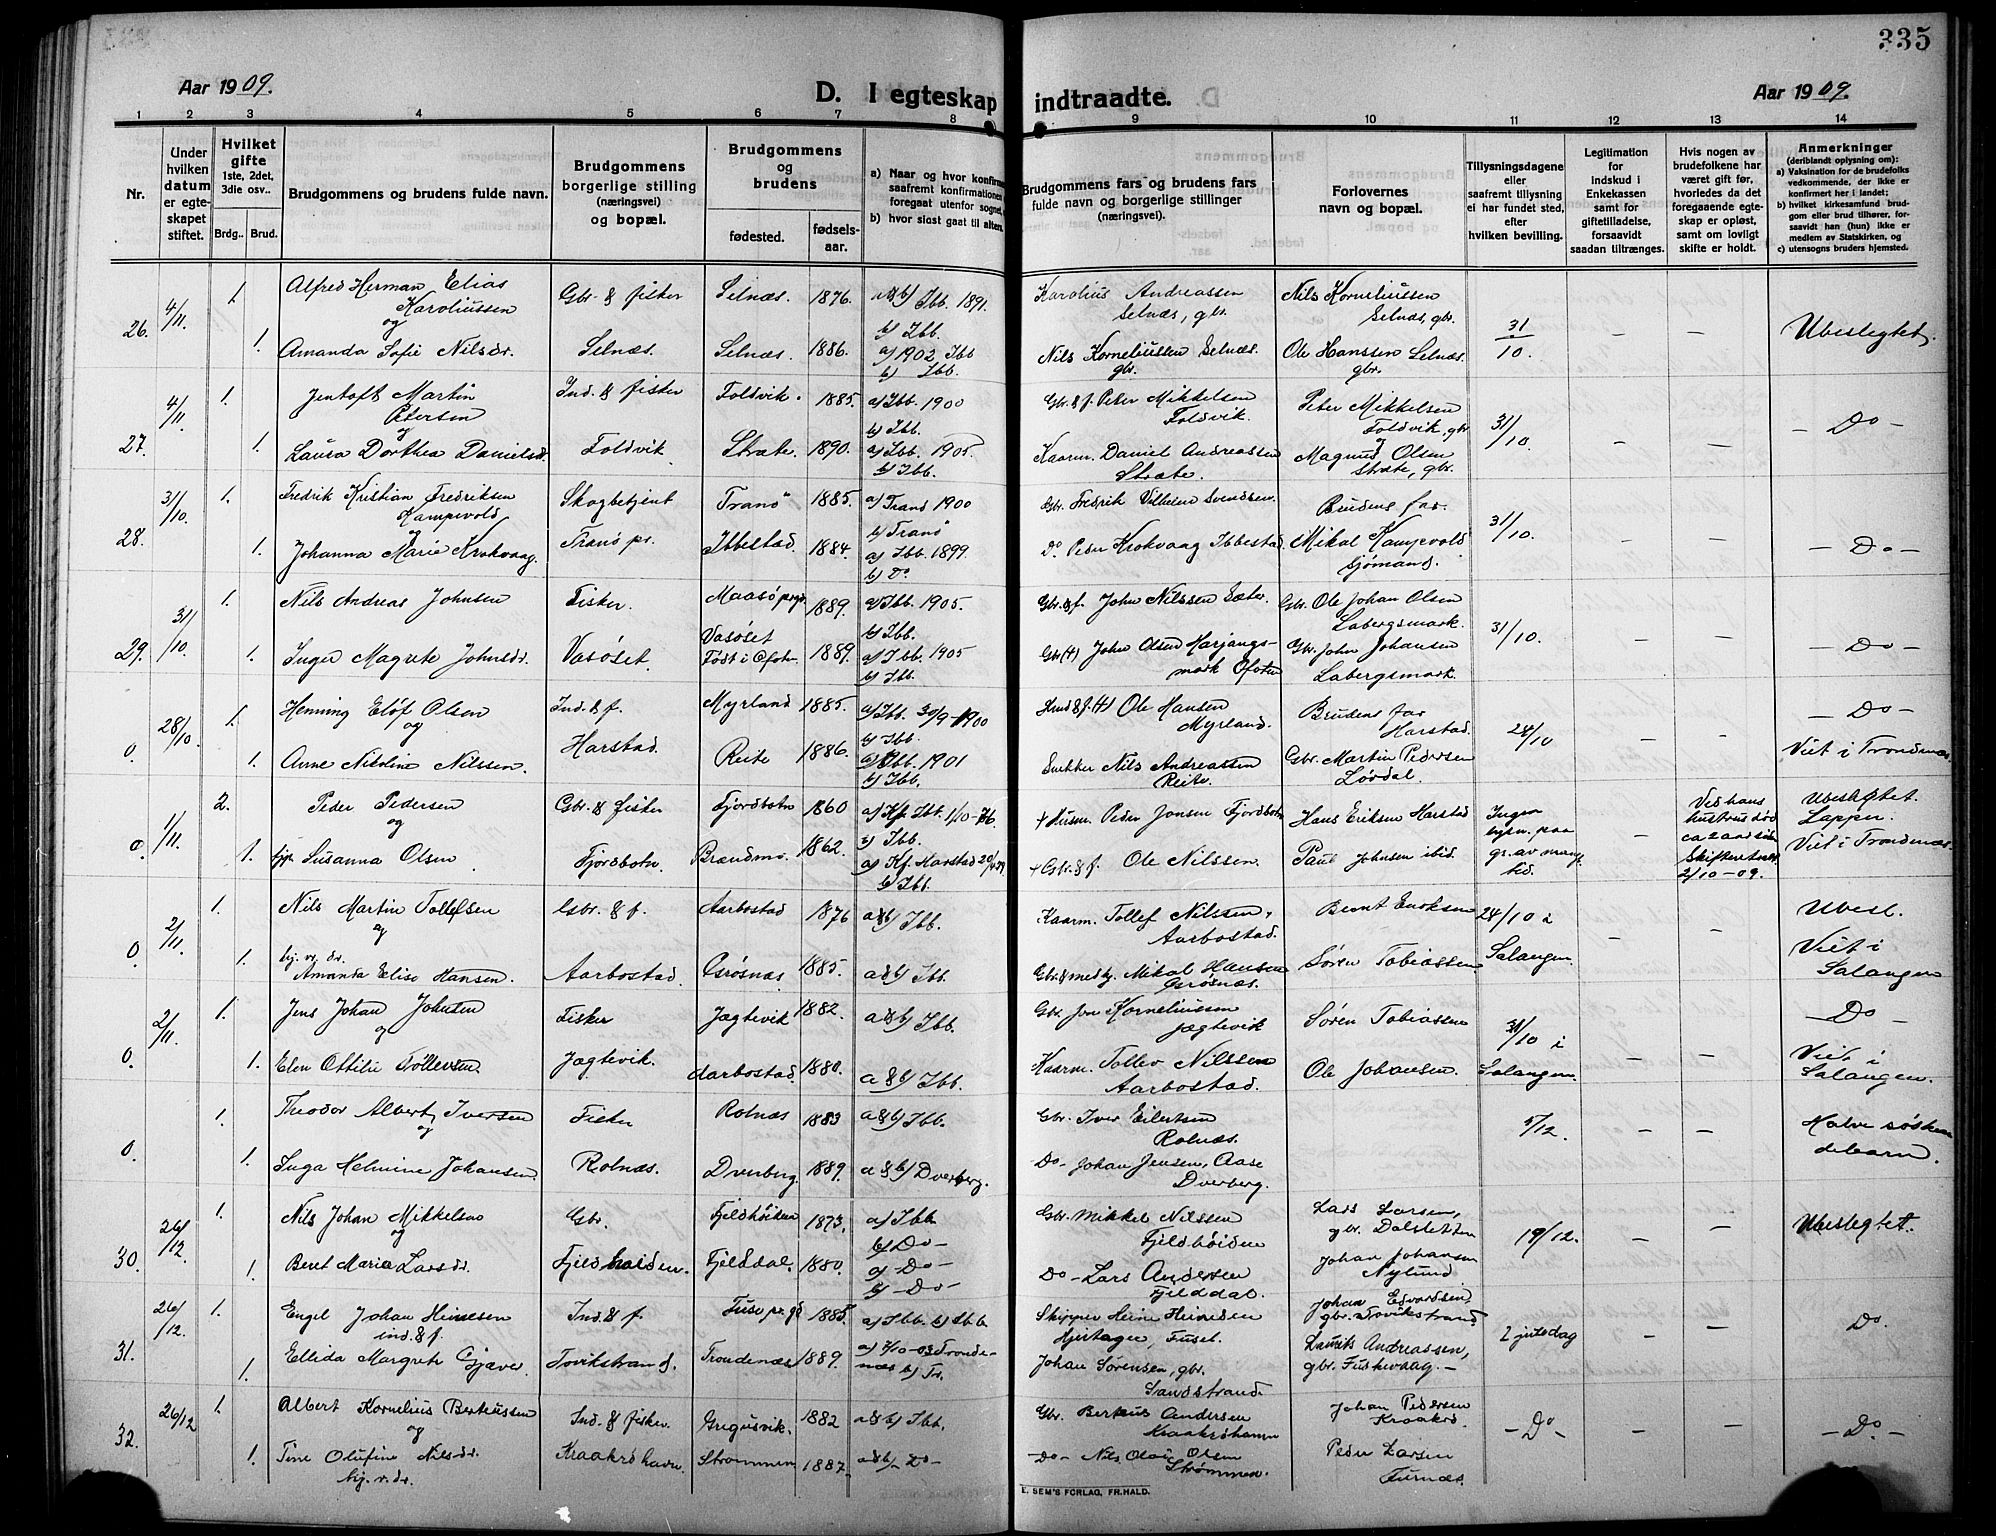 335
Aar 1909.
D. I egteskap indtraadte.
Aar 1909.
1 2 3 4 5 6 7 8 9 10 11 12 13 14
Nr.
Under hvilken datum er egteskapet stiftet.
Hvilket gifte 1ste, 2det, 3die osv..
Brdg.. Brud.
Brudgommens og brudens fulde navn.
Brudgommens borgerlige stilling (næringsvei) og bopæl.
Brudgommens og brudens
fødested. fødsels-aar.
a) Naar og hvor konfirm
saafremt konfirmationen
foregaaet utenfor sognet,
b) hvor sidst gaat til alters.
Brudgommens fars og brudens fars fulde navn og borgerlige stillinger (næringsvei).
Forlovernes navn og bopæl.
Tillysningsdagene eller saafremt tillysning ei har fundet sted, efter hvilken bevilling.
Legitimation for indskud i Enkekassen samt for giftetilladelse, forsaavidt saadan tiltrænges.
Hvis nogen av brudefolkene har været gift før, hvorledes da det foregaaende egteskap er opløst, samt om lovligt skifte er holdt.
Anmerkninger (deriblandt oplysning om):
a) Vaksination for de brudefolks vedkommende, der ikke er konfirmert her i landet;
b) hvilket kirkesamfund brudgom eller brud tilhører, forsaavidt han (hun) ikke er medlem av Statskirken, og
c) utensogns bruders hjemsted.
26. 4/11 1. Alfred Herman Elias Karoliussen Gbr. & fisker Selnæs. 1876. a&b) Ibb. 1891. Karolius Andreassen Selnæs, gbr. Nils Korneliussen Selnæs, gbr. 31/10. — — Ubeslegtet.
og
1. Amanda Sofie Nilsdr. Selnæs. Selnæs. 1886. a) 1902 Ibb b) Ibb. Nils Korneliussen Selnæs. gbr. Ole Hanssen Selnæs. gbr.
27. 4/11 1. Jentoft Martin Petersen Ind. & fisker Foldvik. 1885. a) Ibb. 1900 b) Ibb. Gbr. & f. Peter Mikkelsen Foldvik. Peter Mikkelsen Foldvik, gbr 31/10. — — — Do —
og
1. Laura Dorthea Danielsdr. Foldvik Stræte. 1890. a) Ibb. 1905. b) Ibb. Kaarm. Daniel Andreassen Stræte. Magnus Olsen Stræte, gbr.
28. 31/10 1. Fredrik Kristian Fredriksen Kampevold Skogbetjent Tranö 1885. a) Tranö 1900 b) Tranö Gbr. Fredrik Vilhelm Svendsen. Brudens far. 31/10. — — — Do —
og
1. Johanna Marie Krokvaag. Tranö pr. Ibbestad. 1884. a) Ibb. 1899. b) Do. Do. Peder Krokvaag Ibbestad. Mikal Kampevold Sjömand.
29. 31/10 1. Nils Andreas Johnsen Fisker. Maasö 1889. a) Ibb. 1905. b) Ibb. Gbr. & f. John Nilssen Sæter. Gbr. Ole Johan Olsen Labergsmark. 31/10. — — — Do —
1. Inger Magrete Johnsdr. Vasöset. Vasöset Födt i Ofoten 1889. a) Ibb. 1905 b) Ibb. Gbr. (†) John Olsen Harjangsmark Ofoten Gbr. John Johansen Labergsmark.
0. 28/10. 1. Henning Elof Olsen Ind. & f. Myrland 1885. a) Ibb. 30/9 - 1900 b) Ibb. Ole Hansen Myrland. Brudens far Harstad. 24/10 — — — Do —
og
1. Anne Nikoline Nilssen. Harstad. Reite 1886. a) Ibb. 1901 b) Ibb. Snekker Nils Andreassen Reite. Gbr. Martin Pedersen Lördal. Viet i Trondenæs
0. 1/11. 2. Peder Pedersen Gbr. & fisker Fjordbotn 1860 a) Kf. Ibb. 1/10-76. b) Ibb. † Husm. Peder Jonsen Fjordbotn Hans Eriksen Harstad Ingen lysn. paa gr. av mang. tid. — Ved hans hustrus död ca 2 aar siden Skifteattest 2/10-09. Ubeslegtet. Lapper. Viet i Trondenæs.
og
1. pp. Susanna Olsen Fjordbotn. Brandmo. 1862. a) Kf. Harstad b) Ibb. † Gbr. & f. Ole Nilssen. Paul Johnsen ibid.
0. 2/11. 1. Nils Martin Tollefsen Gbr. & f. Aarbostad 1876 a&b) Ibb. Kaarm. Tollef Nilssen, Aarbostad. Bernt Enoksen 24/10 i Salangen. — — Ubesl.
og
1. Amanta Elise Hansen. Aarbostad. Grösnæs 1885. a&b) Ibb. Gbr. & medhj. Mikal Hansen Grösnæs. Sören Tobiassen Viet i Salangen
0. 2/11. 1. Jens Johan Johnsen Fisker Jægtevik 1882. a&b) Ibb. Gbr. Jon Korneliussen Jægtevik Sören Tobiassen 31/10 i Salangen. — — — Do —
og
1. Elen Ottilie Tollevsen. Jægtevik. Aarbostad. 1880. a&b) Ibb. Kaarm. Tollev Nilssen Aarbostad. Ole Johansen. Viet i Salangen.
0. 1. Theodor Albert Iversen Fisker Rolnæs 1883 a&b) Ibb. Gbr. Iver Eilertsen Rolnæs. 5/12. — — Halve söskendebarn.
og
1. Inga Helmine Johansen. Rolnæs. Dverberg. 1889. a&b) Dverberg. — Do — Johan Jensen, Aase Dverberg.
30. 26/12 1. Nils Johan Mikkelsen Gbr. Fjeldhöiden 1873. a) Ibb. b) Do — Gbr. Mikkel Nilssen Fjeldhöiden Lars Larsen, gbr. Dalsletten 19/12. — — Ubeslegtet.
og
1. Beret Maria Larsdr. Fjeldhöiden. Fjelddal. 1880. a) — Do — b) — Do — Do — Lars Andersen Fjelddal. Johan Johansen Nylund.
31. 26/12. 1. Engel Johan Heinesen ind. & f. Ind. & f. 1885. a) Ibb. b) Ibb. Skipper Heine Heinesen Johan Edvardsen, gbr. Tovikstrand 2 juledag — — Do.
1. Ellida Margrete Gjæver Tovikstrand. Trondenæs 1889. a) 7/10-03 Trondenæs b) Tr. Johan Sörensen, gbr. Sandstrand Laurits Andreassen, gbr. Fuskevaag. —
32. 26/12 1. Albert Kornelius Berteussen Ind. & fisker Gregusvik. 1882 a&b) Ibb. Gbr. Berteus Andersen Kraakröhamn Johan Pedersen Kraakrö. — Do — — — Do —
og
1. Tine Olufine Nilsdr. Kraakröhavn. Strömmen 1887. a&b) — Do — — Do — Nils Olai Olsen Strömmen. Peder Larsen Furnæs.
E. SEM'S FORLAG, FR.HALD.